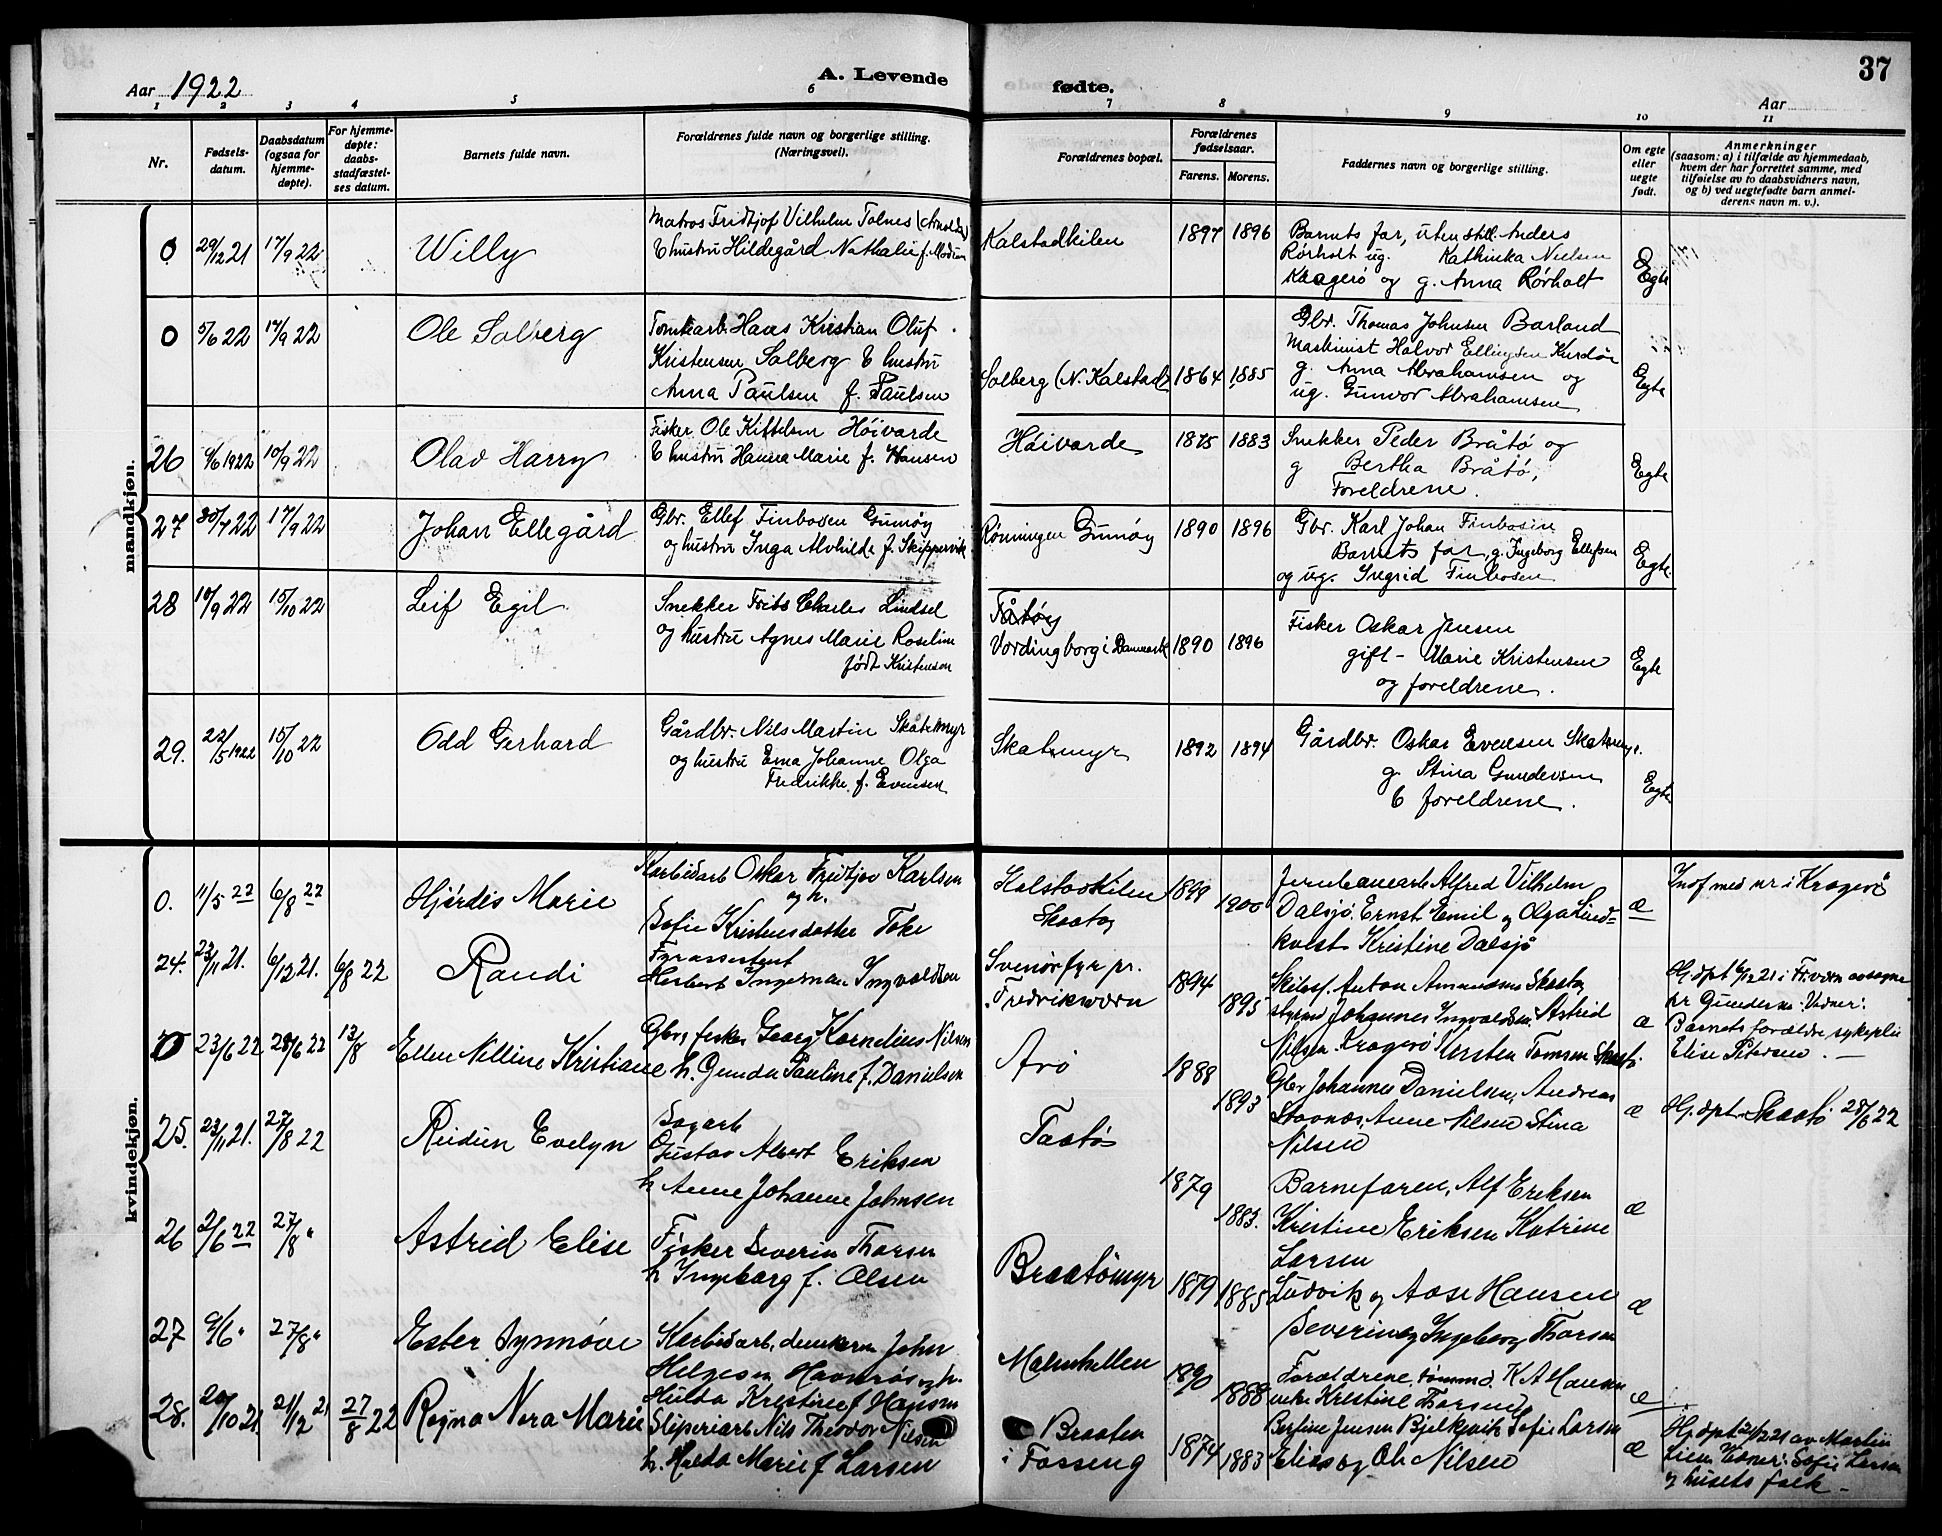 37
Aar 1922
A. Levende
fødte.
Aar
1 2 3 4 5 6 7 8 9 10 11
Nr.
Fødsels-
datum.
Daabsdatum
(ogsaa for
hjemme-
døpte).
For hjemme-
døpte:
daabs-
stadfæstel-
ses datum.
Barnets fulde navn.
Forældrenes fulde navn og borgerlige stilling.
(Næringsvei).
Forældrenes bopæl.
Forældrenes
fødselsaar.
Farens. Morens.
Faddernes navn og borgerlige stilling.
Om egte
eller
uegte
født.
Anmerkninger
(saasom: a) i tilfælde av hjemmedaab,
hvem der har forrettet samme, med
tilføielse av to daabsvidners navn,
og b) ved uegtefødte barn anmel-
derens navn m. v.).
mandkjøn.
0 29/12 21 17/9 22 Willy
Matros Fridtjof Vilhelm Tolnes
& hustru Hildegård Nathalie f.
Kalstadkilen 1897 1896
Barnets far, uten still. Anders
Rørholt ug. Kathinka Nielsen
Kragerø og g. Anna Rørholt
Egte
0 5/6 22 17/9 22 Ole Solberg
Hans Kristian Oluf
Kristensen Solberg & hustru
Anna Paulsen f. Paulsen
Solberg (N. Kalstad) 1864 1885
Gbr. Thomas Johnsen Barland
Maskinist Halvor Ellingsen
g. Anna Abrahamsen og
ug. Gunvor Abrahamsen
Egte
26 9/6 1922 10/9 22 Olav Harry
Fisker Ole Kittelsen Höivarde
& hustru Hanna Marie f. Hansen
Höivarde 1875 1883
Snekker Peder Bråtö og
g Bertha Bråtö,
Foreldrene.
Egte
27 30/7 22 17/9 22 Johan Ellegård
Gbr. Ellef Finbosen Gumøy
og hustru Inga Alvhilde f. Skippervik
Rønningen Gumøy 1890 1896
Gbr. Karl Johan Finbosen
Barnets far, g. Ingeborg Ellefsen
og ug. Ingrid Finbosen
Egte
28 10/9 22 15/10 22 Leif Egil
Snekker Frits Charles Lindsel
og hustru Agnes Marie Roseline
født Kristensen
Tåtøy
Vordingborg i Danmark 1890 1896
Fisker Oskar Jensen
gift - Marie Kristensen
og foreldrene.
Egte
29. 22/5 1922 15/10 22 Odd Gerhard
Gårdbr. Nils Martin Skåtemyr
og hustru Erna Johanne Olga
Fredrikke f. Evensen
Skatmyr 1892 1894
Gårdbr. Oskar Evensen Skatmyr.
g. Stina Gundersen
& foreldrene.
Egte
kvindekjøn.
0. 11/5 22 6/8 22 Hjördis Marie
Karbidarb Oskar Fridtjov Karlsen
og h.
Sofie Kristensdatter Toke
Kalstadkilen
Skaatø 1899 1900
Jernbanearb Alfred Vilhelm
Dalsjö. Ernst Emil og Olga Lind-
kvist Kristine Dalsjö
æ
Indf med nr i Kragerö
24. 23/11 21. 6/12 21. 6/8 22 Randi
Fyrassistent
Herbert Ingeman Ingvaldsen
Svenör fyr pr.
Fredriksværn 1894 1895
Anton Amundsen Skaatø
styrmd Johannes Ingvaldsen. Astrid
Nilsen. Kragerö Kirsten Tomsen
æ
Hj. dpt 6/12 21 i Fr.værn av sogne
pr Gundersen. Vidner:
Barnets forældre, sykeplei
Elise Petersen. —
0 23/6 22 28/6 22 13/8 Ellen Nilline Kristiane
Gbr, fisker Georg Kornelius Nilsen
h. Gunda Pauline f. Danielsen
Arö 1888 1893
Gbr Johannes Danielsen, Andreas
Stavnæs, Anne Nilsen Stina
Nilsen
æ
Hj. dpt. Skaatö 28/6 22
25. 23/11 21. 27/8 22 Reidun Evelyn
Sagarb
Gustav Albert Eriksen
h Anne Johanne Johnsen
Taatö 1879 1883.
Barnefaren, Alf Eriksen
Kristine Eriksen Katrine
Larsen
æ
26 2/6 22 27/8 " Astrid Elise
Fisker Severin Thorsen
h Ingeborg f. Olsen
Braatömyr 1879 1885
Ludvik og Aase Hansen
Severin og Ingeborg Thorsen
æ
27 9/6 " 27/8 " Ester Synnöve
Karbidarb, John
Helgesen h.
Hulda Kristine f Hansen
Malmhellen 1890 1888
Forældrene, K A Hansen
Kristine Thorsen
æ
28. 20/10 21. 21/12 21 27/8 22 Ragna Nora Marie
Sliperiarb Nils Theodor Nilsen
h. Hulda Marie f Larsen
Braaten
i Fossing 1874 1883
Bertine Jensen Bjelkevik Sofie Larsen
Elise og Ole Nilsen
æ
Hj. dpt 21/12 21 av Martin
Lien Vidner: Sofie Larsen
og husets folk -